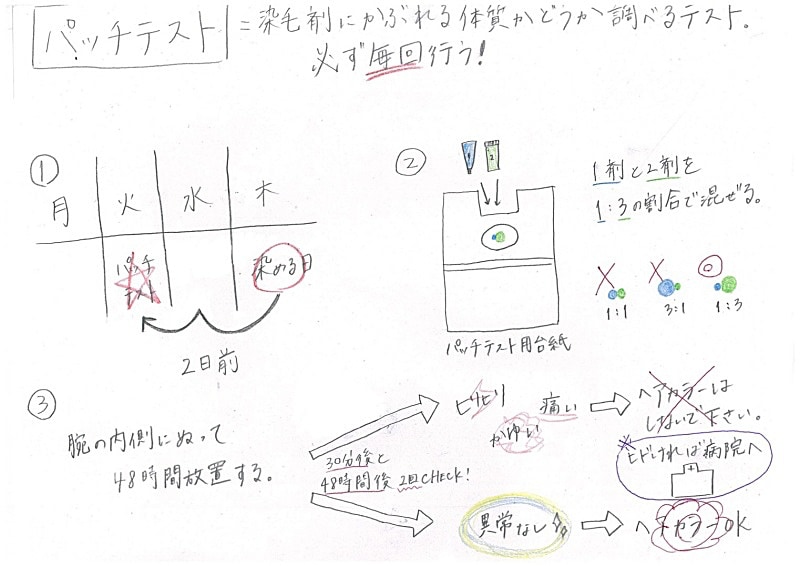 パッチテスト =染毛剤にかぶれる体質かどうか調べるテスト。
必ず毎回行う!
①
月 火 水 木
パッチテスト 染める日
2日前
②
1 2
1剤と2剤を
1:3の割合で混ぜる。
1:1 3:1 1:3
パッチテスト用台紙
③
腕の内側にぬって
48時間放置する。
30分後と
48時間後 2回CHECK!
ピリピリ 痛い
かゆい
ヘアカラーは
しないで下さい。
※ヒドければ病院へ
異常なし
ヘアカラーOK